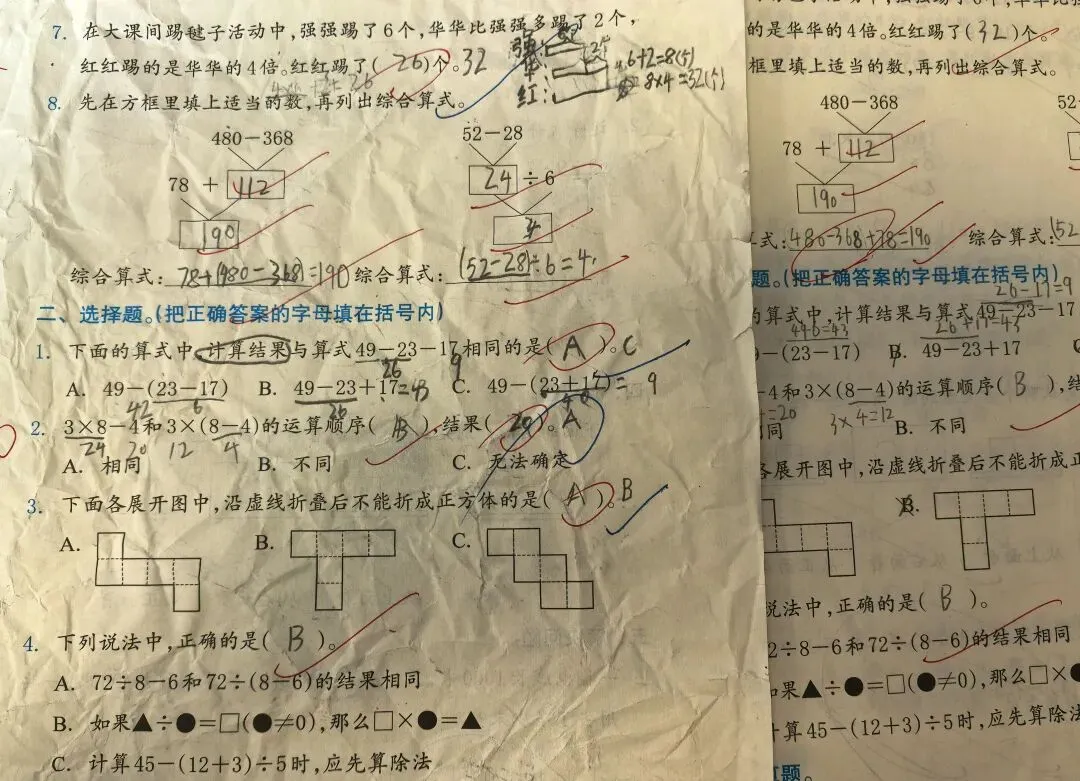 7. 在大课间踢毽子活动中,强强踢了6个,华华比强强多踢了2个,
红红踢的是华华的4倍。红红踢了(26)个。32
强:
华: 6+2=8(个)
红: 8×4=32(个)
8. 先在方框里填上适当的数,再列出综合算式。
480-368 52-28
78 + 112 24 ÷6
190 4
综合算式: 78+(480-368)=190 综合算式: (52-28)÷6=4
二、选择题。(把正确答案的字母填在括号内)
1. 下面的算式中,计算结果与算式49-23-17相同的是(A)。C
26 9
A. 49-(23-17) B. 49-23+17=43 C. 49-(23+17)=9
6 26 40
2. 3×8-4和3×(8-4)的运算顺序(B),结果(20)。A
24 20 12 4
A. 相同 B. 不同 C. 无法确定
3. 下面各展开图中,沿虚线折叠后不能折成正方体的是(A)。B
A. B. C.
4. 下列说法中,正确的是(B)。
A. 72÷8-6和72÷(8-6)的结果相同
B. 如果▲÷●=□(●≠0),那么□×●=▲
C. 计算45-(12+3)÷5时,应先算除法
的是华华的4倍。红红踢了(32)个。
框里填上适当的数,再列出综合算式。
480-368 52
78 + 112
190
式: 480-368+78=190 综合算式: (52
题。(把正确答案的字母填在括号内)
26-17=9
的算式中,计算结果与算式49-23-17
49-6=43 26+17=43
9-(23-17) B. 49-23+17
-4和3×(8-4)的运算顺序(B),结
=20 3×4=12
同 B. 不同
各展开图中,沿虚线折叠后不能折成正
B.
说法中,正确的是(B)。
2÷8-6和72÷(8-6)的结果相同
果▲÷●=□(●≠0),那么□×●
计算45-(12+3)÷5时,应先算除
题。